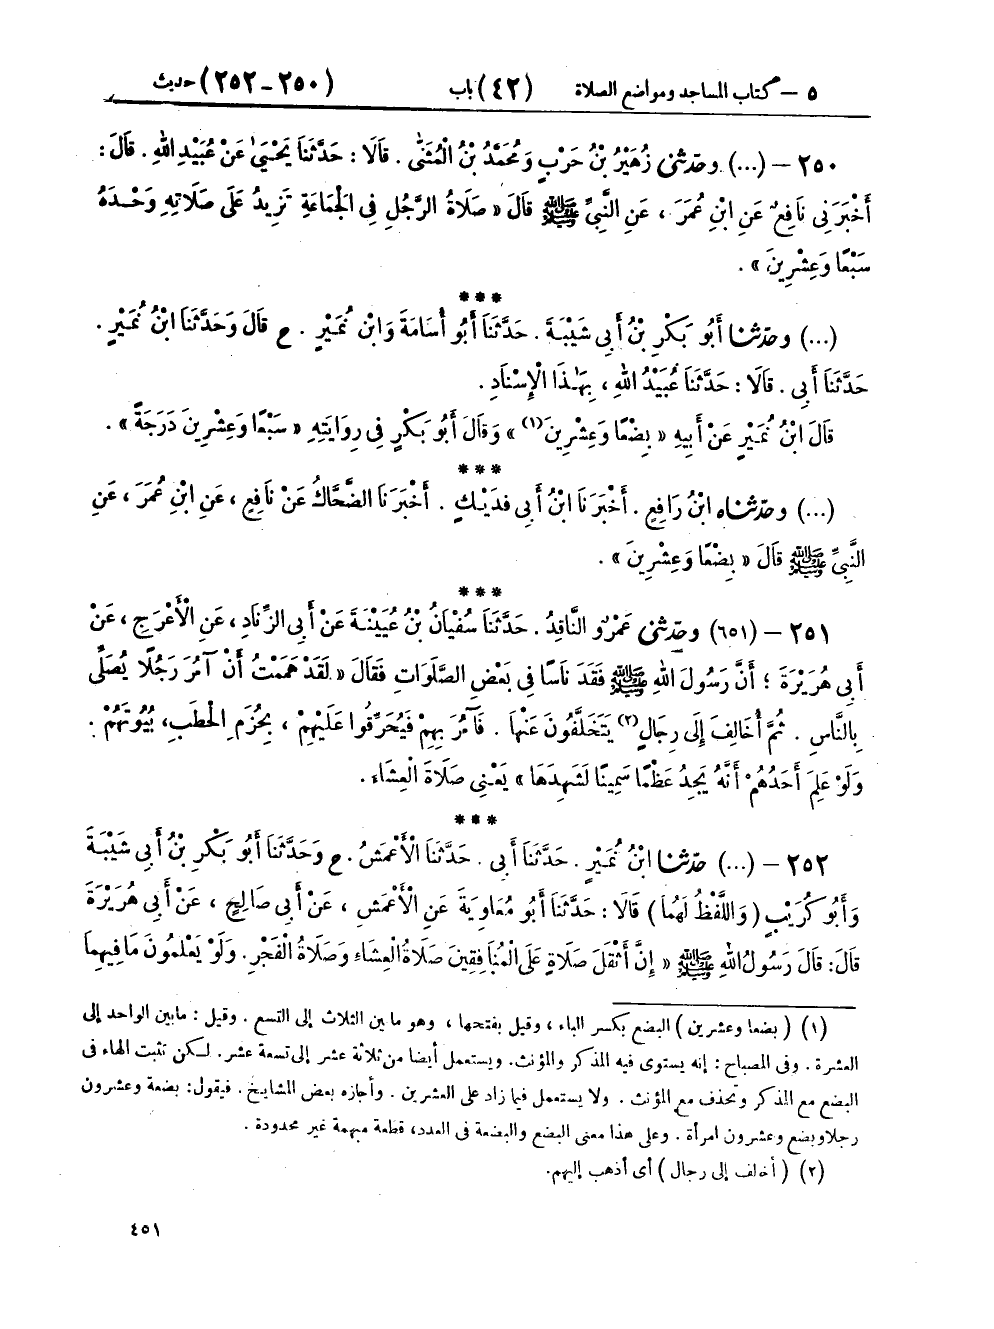 ٥ — كتاب المساجد ومواضع الصلاة (٤٢) باب (٢٥٠ — ٢٥٢) حديث
٢٥٠ — (...) وحَدَّثَنِي زُهَيْرُ بْنُ حَرْبٍ وَمُحَمَّدُ بْنُ الْمُثَنَّى . قَالَا : حَدَّثَنَا يَحْيَىٰ عَنْ عُبَيْدِ اللهِ . قَالَ :
أَخْبَرَنِي نَافِعٌ عَنِ ابْنِ عُمَرَ ، عَنِ النَّبِيِّ ﷺ قَالَ « صَلَاةُ الرَّجُلِ فِي الْجَمَاعَةِ تَزِيدُ عَلَى صَلَاتِهِ وَحْدَهُ
سَبْعًا وَعِشْرِينَ » .
***
(...) وحَدَّثَنَا أَبُو بَكْرِ بْنُ أَبِي شَيْبَةَ . حَدَّثَنَا أَبُو أُسَامَةَ وَابْنُ نُمَيْرٍ . ح قَالَ وَحَدَّثَنَا ابْنُ نُمَيْرٍ .
حَدَّثَنَا أَبِي . قَالَا : حَدَّثَنَا عُبَيْدُ اللهِ ، بِهَٰذَا الْإِسْنَادِ .
قَالَ ابْنُ نُمَيْرٍ عَنْ أَبِيهِ « بِضْعًا وَعِشْرِينَ(١) » وَقَالَ أَبُو بَكْرٍ فِي رِوَايَتِهِ « سَبْعًا وَعِشْرِينَ دَرَجَةً » .
***
(...) وحَدَّثَنَاه ابْنُ رَافِعٍ . أَخْبَرَنَا ابْنُ أَبِي فُدَيْكٍ . أَخْبَرَنَا الضَّحَّاكُ عَنْ نَافِعٍ ، عَنِ ابْنِ عُمَرَ ، عَنِ
النَّبِيِّ ﷺ قَالَ « بِضْعًا وَعِشْرِينَ » .
***
٢٥١ — (٦٥١) وحَدَّثَنِي عَمْرٌو النَّاقِدُ . حَدَّثَنَا سُفْيَانُ بْنُ عُيَيْنَةَ عَنْ أَبِي الزِّنَادِ ، عَنِ الْأَعْرَجِ ، عَنْ
أَبِي هُرَيْرَةَ ؛ أَنَّ رَسُولَ اللهِ ﷺ فَقَدَ نَاسًا فِي بَعْضِ الصَّلَوَاتِ فَقَالَ « لَقَدْ هَمَمْتُ أَنْ آمُرَ رَجُلًا يُصَلِّي
بِالنَّاسِ . ثُمَّ أُخَالِفَ إِلَى رِجَالٍ(٢) يَتَخَلَّفُونَ عَنْهَا . فَآمُرَ بِهِمْ فَيُحَرِّقُوا عَلَيْهِمْ ، بِحُزَمِ الْحَطَبِ، بُيُوتَهُمْ .
وَلَوْ عَلِمَ أَحَدُهُمْ أَنَّهُ يَجِدُ عَظْمًا سَمِينًا لَشَهِدَهَا » يَعْنِي صَلَاةَ الْعِشَاءِ .
***
٢٥٢ — (...) حَدَّثَنَا ابْنُ نُمَيْرٍ . حَدَّثَنَا أَبِي . حَدَّثَنَا الْأَعْمَشُ . ح وَحَدَّثَنَا أَبُو بَكْرِ بْنُ أَبِي شَيْبَةَ
وَأَبُو كُرَيْبٍ ( وَاللَّفْظُ لَهُمَا ) قَالَا : حَدَّثَنَا أَبُو مُعَاوِيَةَ عَنِ الْأَعْمَشِ ، عَنْ أَبِي صَالِحٍ ، عَنْ أَبِي هُرَيْرَةَ
قَالَ: قَالَ رَسُولُ اللهِ ﷺ « إِنَّ أَثْقَلَ صَلَاةٍ عَلَى الْمُنَافِقِينَ صَلَاةُ الْعِشَاءِ وَصَلَاةُ الْفَجْرِ. وَلَوْ يَعْلَمُونَ مَا فِيهِمَا
(١) ( بضعا وعشرين ) البضع بكسر الباء ، وقيل بفتحها ، وهو ما بين الثلاث إلى التسع . وقيل : مابين الواحد إلى
العشرة . وفى المصباح : إنه يستوى فيه المذكر والمؤنث. ويستعمل أيضا من ثلاثة عشر إلى تسعة عشر. لكن تثبت الهاء فى
البضع مع المذكر وتحذف مع المؤنث . ولا يستعمل فيما زاد على العشرين . وأجازه بعض المشايخ . فيقول: بضعة وعشرون
رجلا وبضع وعشرون امرأة . وعلى هذا معنى البضع والبضعة فى العدد، قطعة مبهمة غير محدودة .
(٢) ( أخالف إلى رجال ) أى أذهب إليهم.
٤٥١